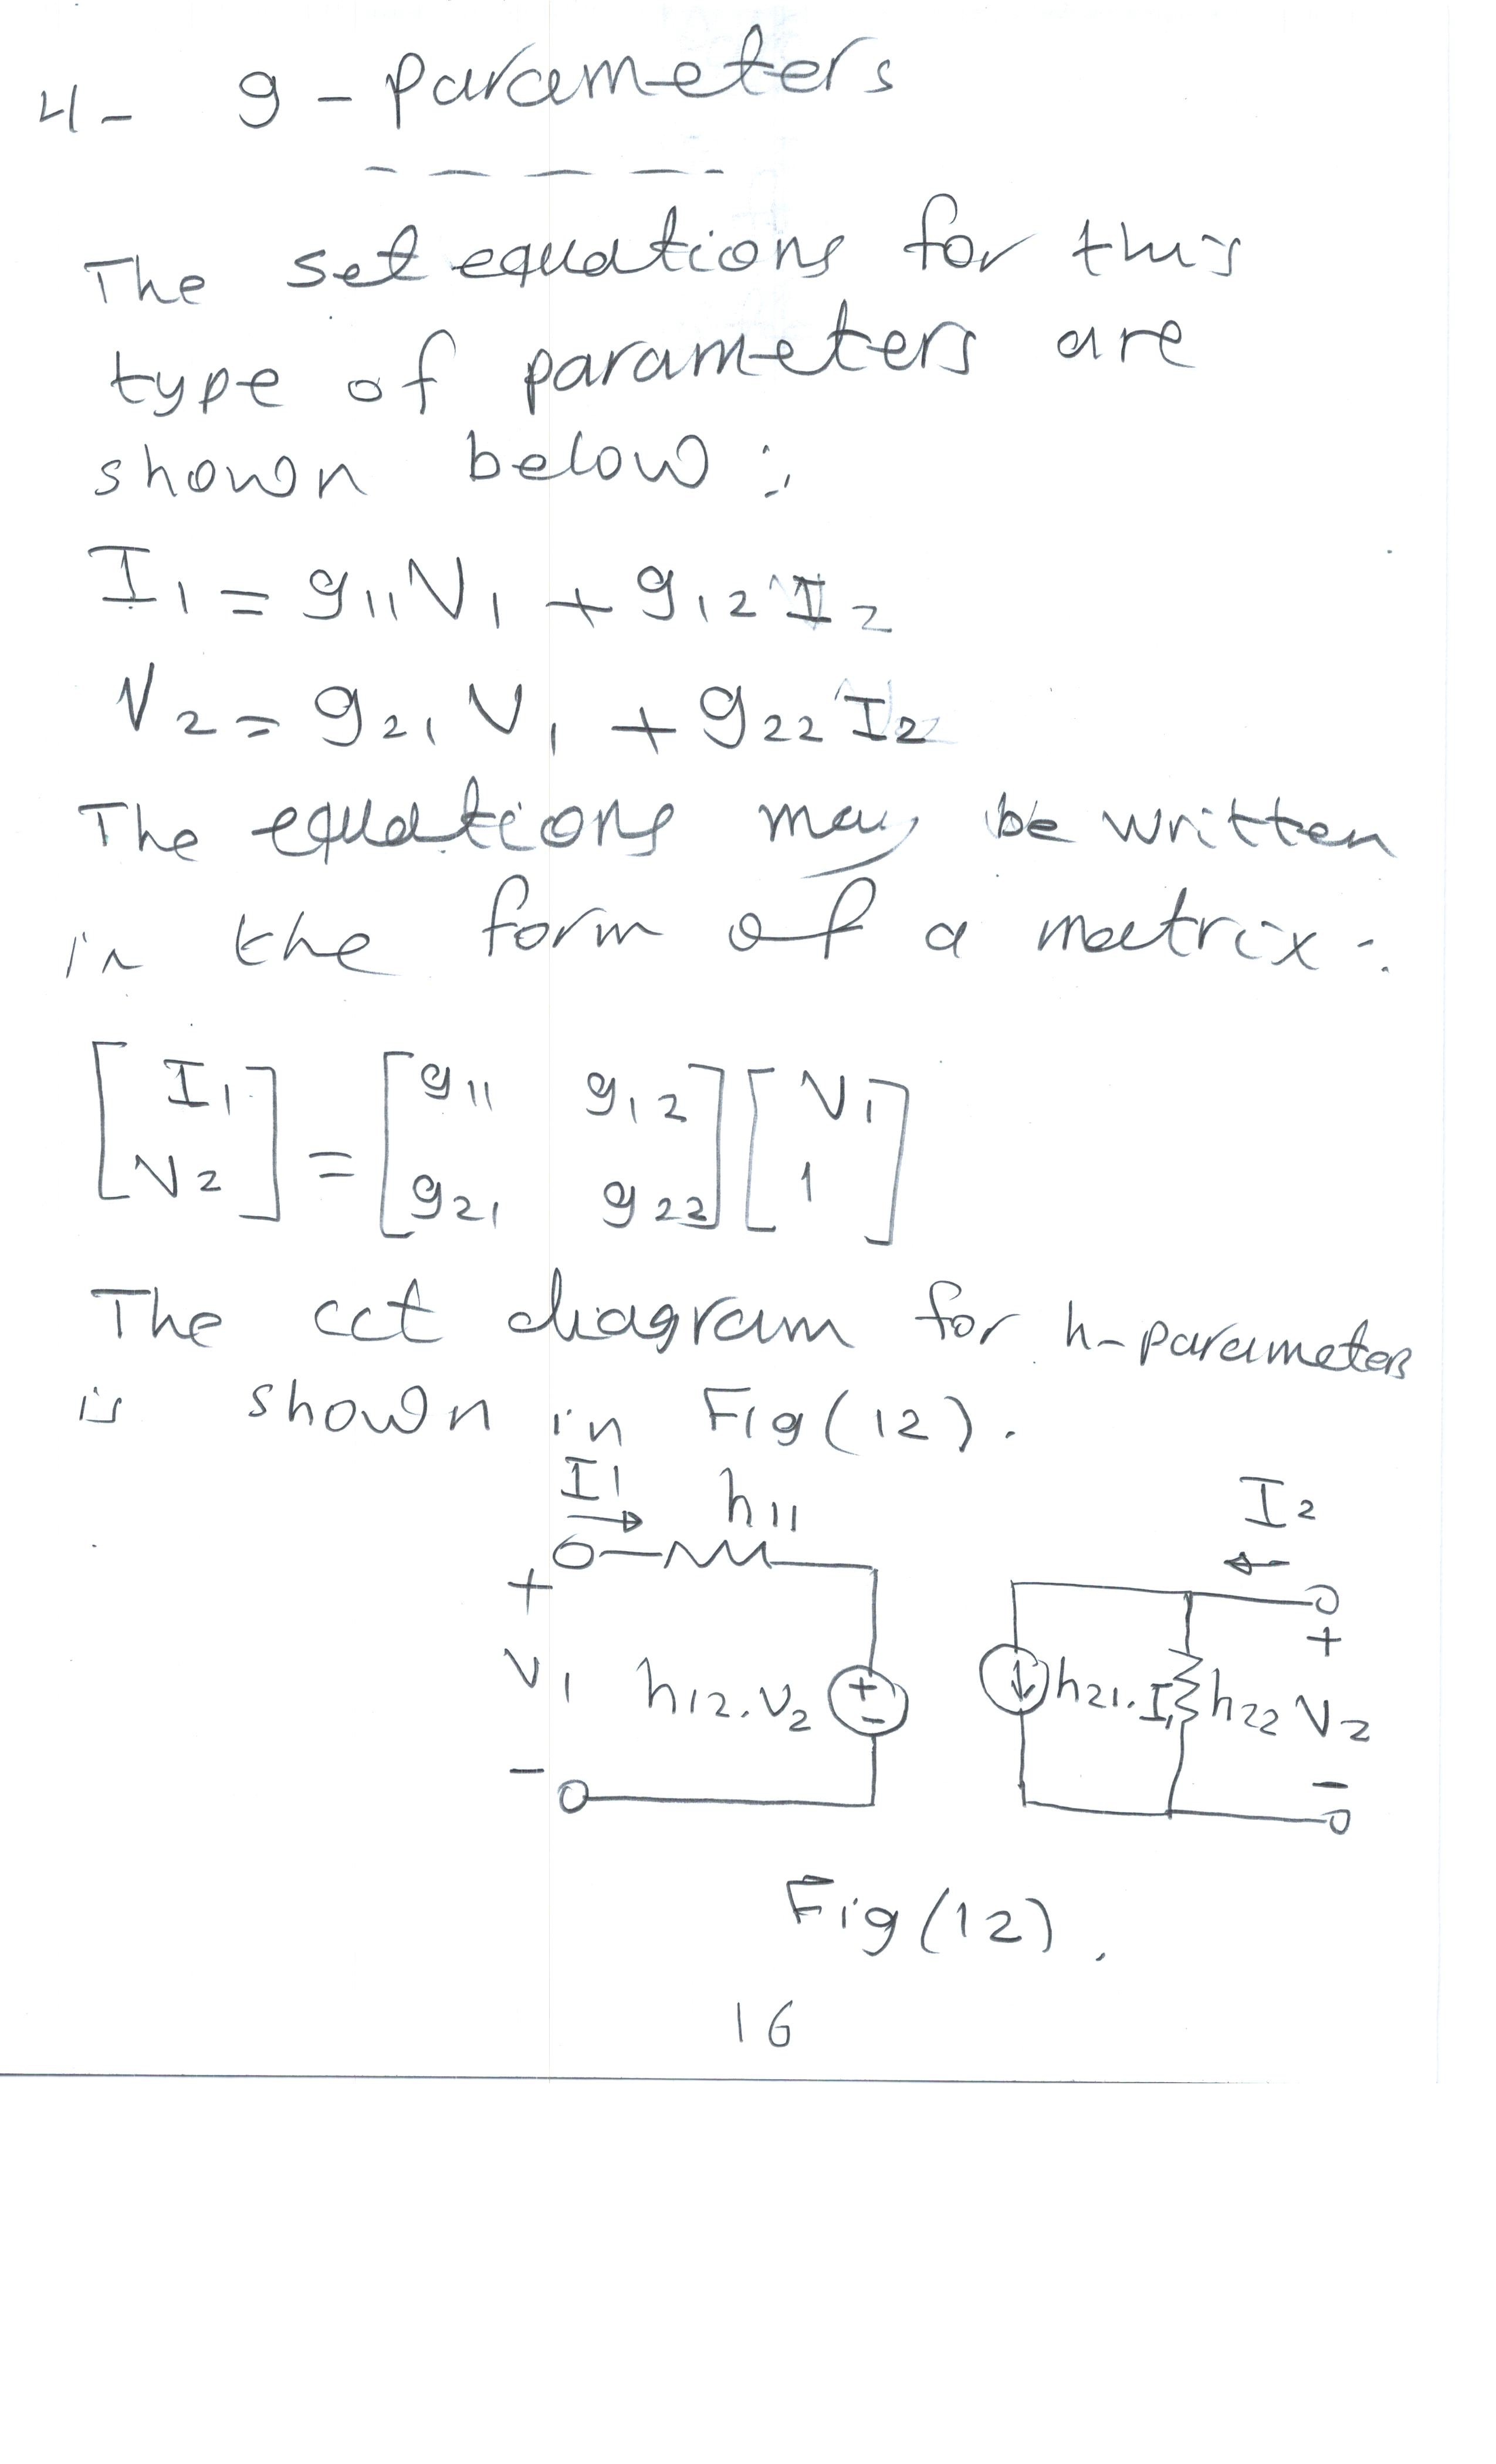 4- g-parameters
The set equations for this
type of parameters are
shown below:
I1 = g11V1 + g12 I2
V2 = g21 V1 + g22 I2
The equations may be written
in the form of a matrix:
[I1 V2] = [g11 g12 g21 g22] [V1 1]
The cct diagram for h-parameters
is shown in Fig(12).
I1 h11 I2
+ +
V1 h12.V2 + - h21.I1 h22 V2
- -
Fig(12).
16